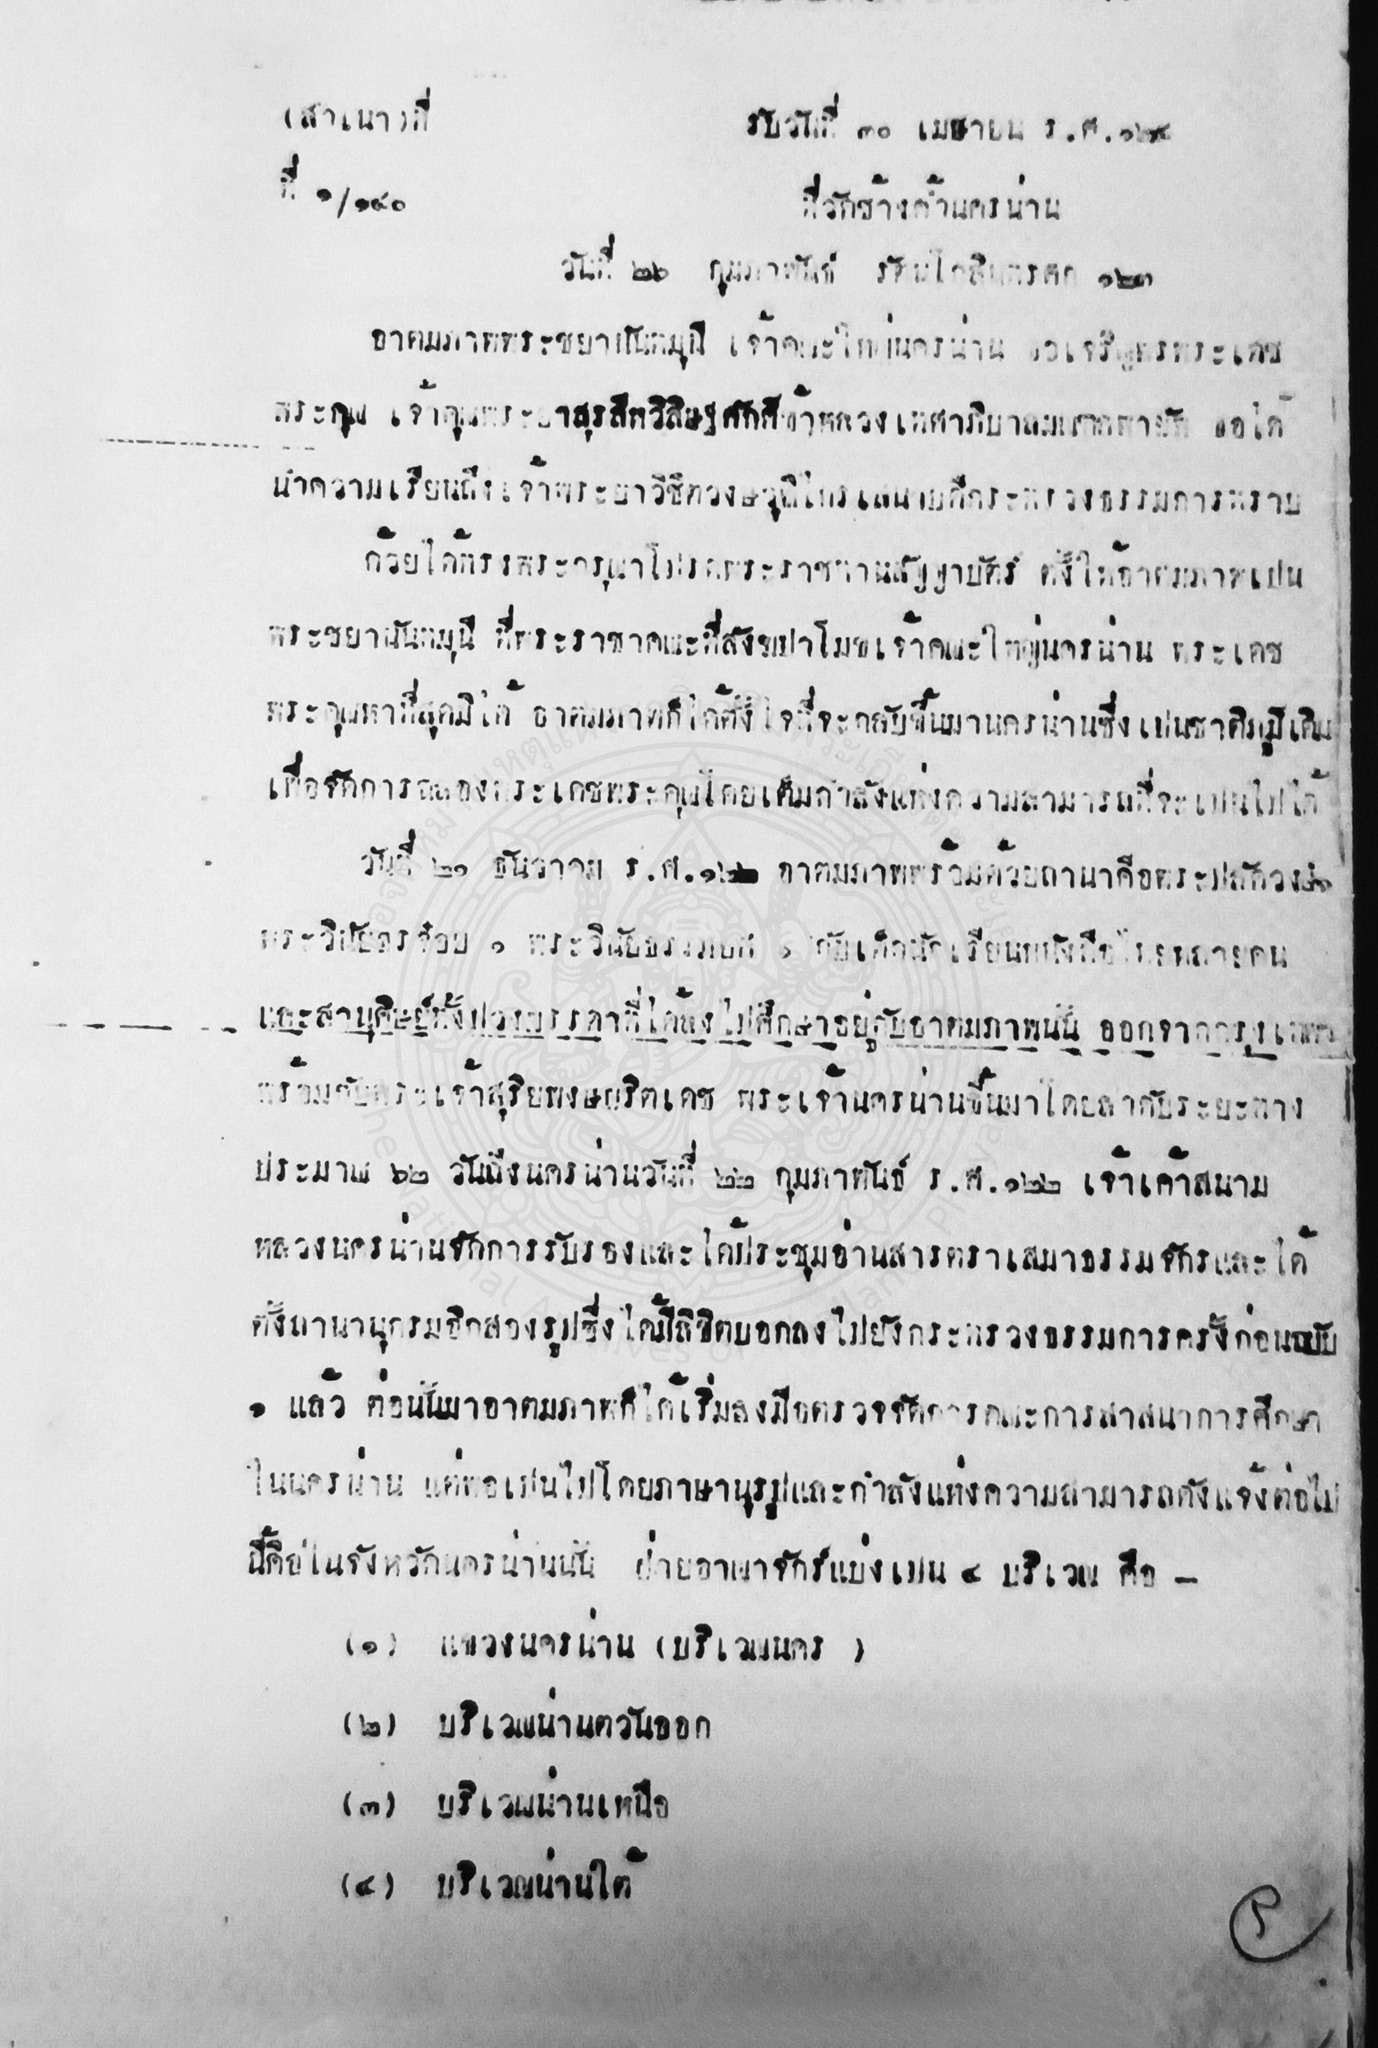 (สำเนา)ที่ รับวันที่ ๓๐ เมษายน ร.ศ.๑๒๔
ที่ ๑/๑๔๐ ที่วัดช้างค้ำนครน่าน
วันที่ ๒๖ กุมภาพันธ์ รัตนโกสินทรศก ๑๒๓
อาตมภาพพระชยานันทมุนี เจ้าคณะใหญ่นครน่าน ขอเจริญพรพระเดช
พระคุณ เจ้าคุณพระยาสุรสีหวิสิษฐศักดิ์ข้าหลวงเทศาภิบาลมณฑลพายัพ ขอได้
นำความเรียนถึงเจ้าพระยาวิชิตวงษวุฒิไกรเสนาบดีกระทรวงธรรมการทราบ
ด้วยได้ทรงพระกรุณาโปรดพระราชทานสัญญาบัตร์ ตั้งให้อาตมภาพเปน
พระชยานันทมุนี ที่พระราชาคณะที่สังฆปาโมขเจ้าคณะใหญ่นครน่าน พระเดช
พระคุณหาที่สุดมิได้ อาตมภาพก็ได้ตั้งใจที่จะกลับขึ้นมานครน่านซึ่งเปนชาติภูมิเดิม
เพื่อจัดการฉลองพระเดชพระคุณโดยเต็มกำลังแห่งความสามารถที่จะเปนไปได้
วันที่ ๒๑ ธันวาคม ร.ศ.๑๒๒ อาตมภาพพร้อมด้วยถานาคือพระปลัดวงษ์ ๑
พระวินัยธรจ๋อย ๑ พระวินัยธรรม ๑ กับเด็กนักเรียนหนังสือไทยหลายคน
และสานุศิษย์ทั้งปวงบรรดาที่ได้ลงไปศึกษาอยู่กับอาตมภาพนั้น ออกจากกรุงเทพฯ
พร้อมกับพระเจ้าสุริยพงษผริตเดช พระเจ้านครน่านขึ้นมาโดยลำดับระยะทาง
ประมาณ ๖๒ วันถึงนครน่านวันที่ ๒๒ กุมภาพันธ์ ร.ศ.๑๒๒ เจ้าเค้าสนาม
หลวงนครน่านจัดการรับรองและได้ประชุมอ่านสารตราเสมาธรรมจักรและได้
ตั้งถานานุกรมอีกสองรูปซึ่งได้มีลิขิตบอกลงไปยังกระทรวงธรรมการครั้งก่อนฉบับ
๑ แล้ว ต่อนั้นมาอาตมภาพก็ได้เริ่มลงมือตรวจจัดการคณะการสาสนาการศึกษา
ในนครน่าน แต่พอเปนไปโดยภาษานุรูปและกำลังแห่งความสามารถดังแจ้งต่อไป
นี้คือในจังหวัดนครน่านนั้น ฝ่ายอาณาจักร์แบ่งเปน ๔ บริเวณ คือ –
(๑) แขวงนครน่าน (บริเวณนคร )
(๒) บริเวณน่านตวันออก
(๓) บริเวณน่านเหนือ
(๔) บริเวณน่านใต้